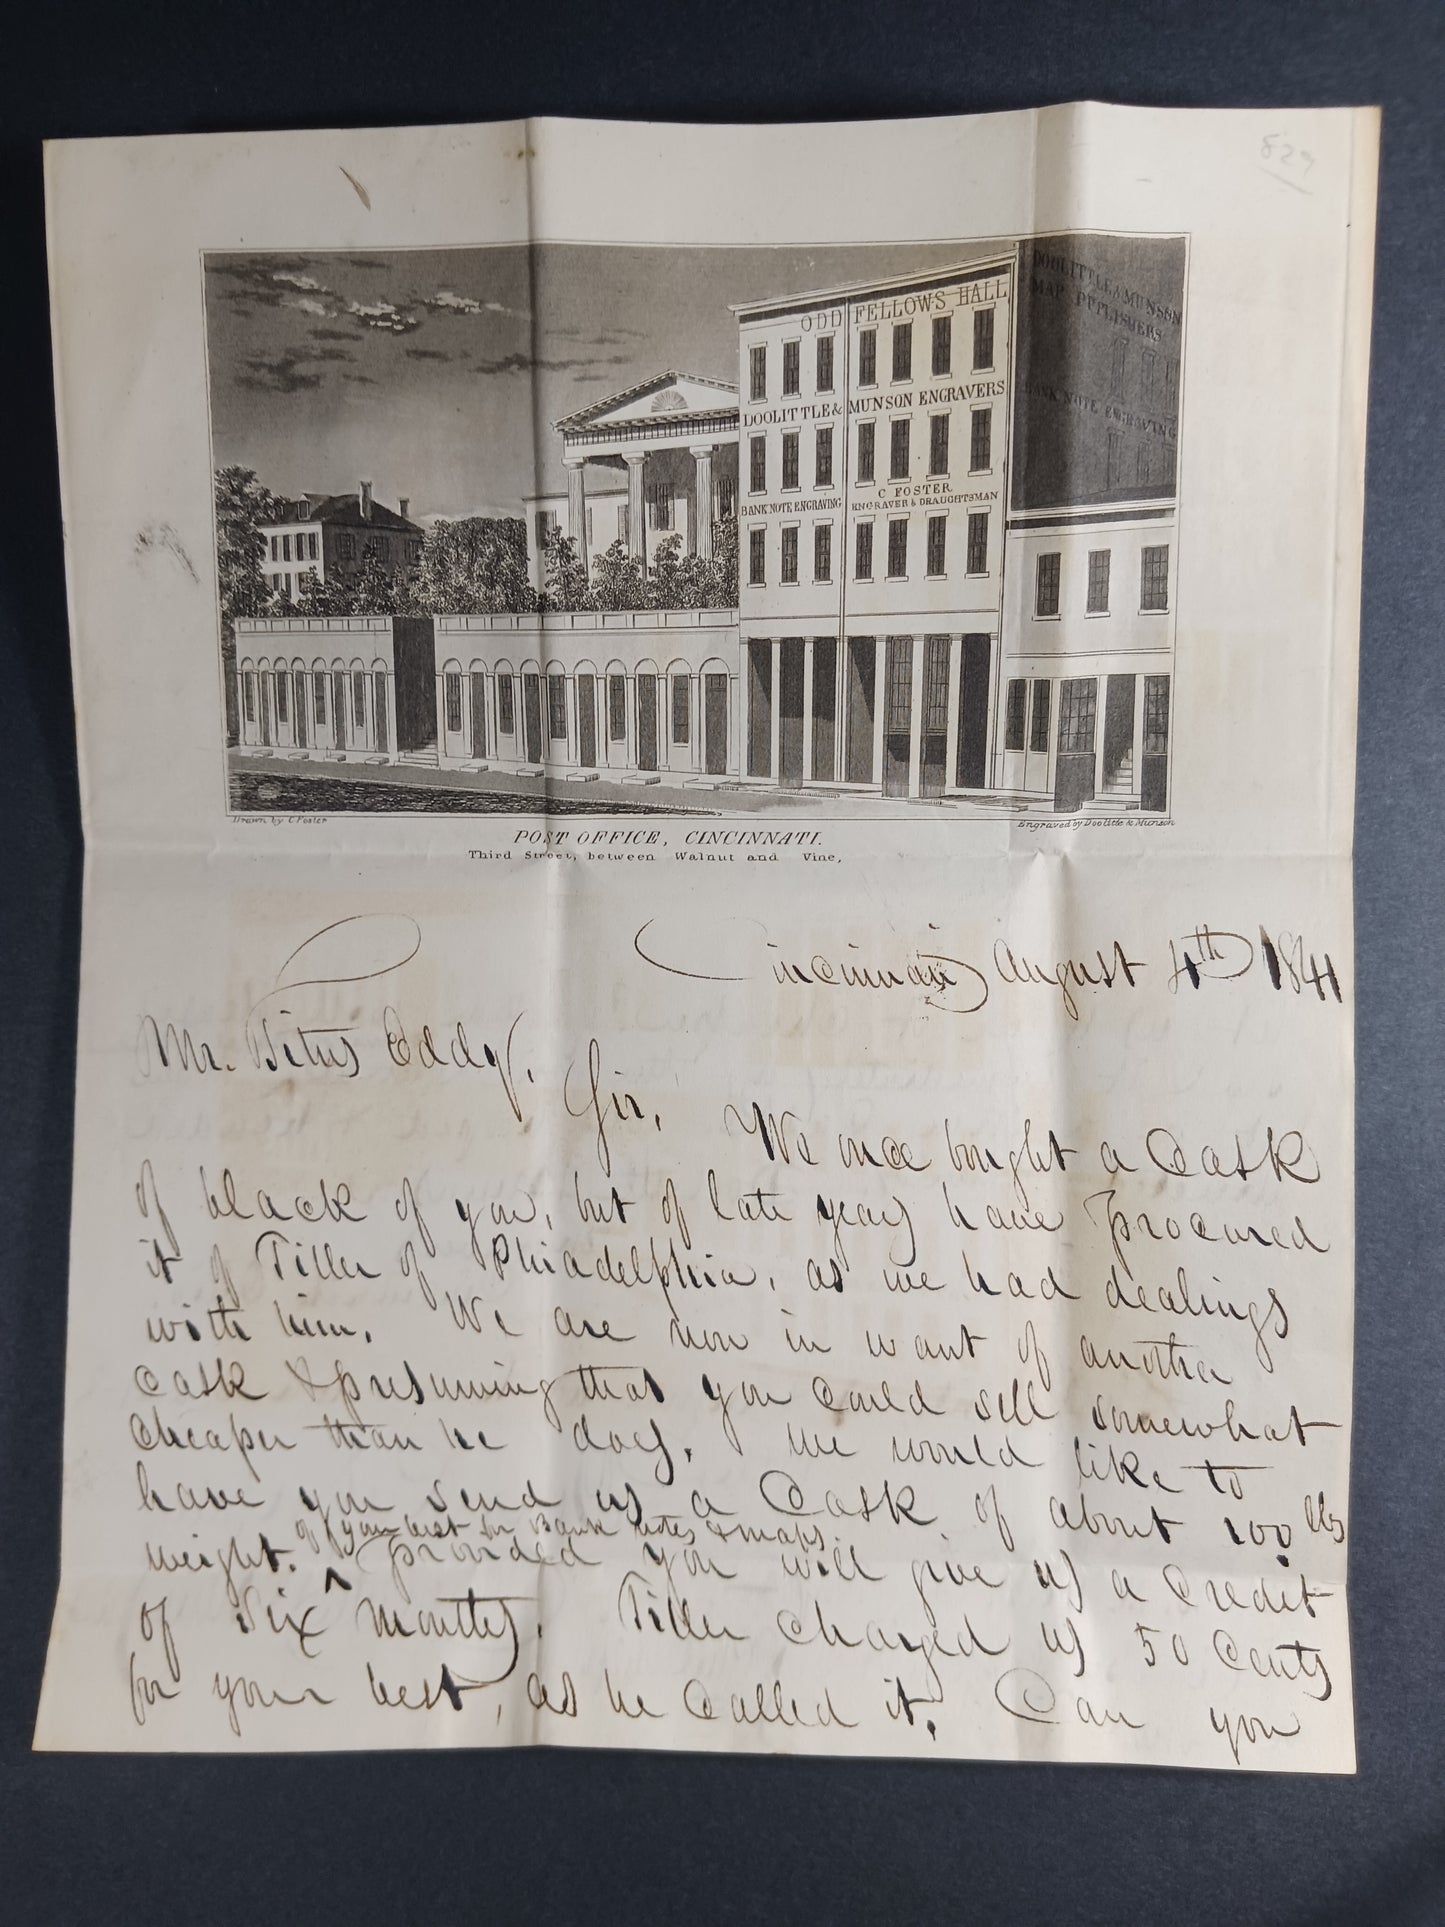 829
ODD FELLOWS HALL
DOOLITTLE & MUNSON ENGRAVERS
BANK NOTE ENGRAVING
C FOSTER
ENGRAVER & DRAUGHTSMAN
DOOLITTLE & MUNSON
MAP PUBLISHERS
BANK NOTE ENGRAVING
Drawn by C Foster
Engraved by Doolittle & Munson
POST OFFICE, CINCINNATI.
Third Street, between Walnut and Vine,
Cincinnati August 4th 1841
Mr. Titus Eddy.
Sir, We once bought a Cask
of black of you, but of late years have procured
it of Tiller of Philadelphia, as we had dealings
with him. We are now in want of another
Cask & presuming that you could sell somewhat
Cheaper than he does, we would like to
have you send us a Cask of about 100 lbs
of your best for Bank notes & maps.
weight. ^ provided you will give us a Credit
of Six months. Tiller charged us 50 Cents
for your best, as he Called it. Can you